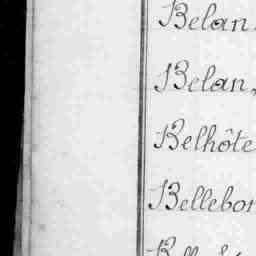 Belan
Belan,
Belhôte
Bellebon